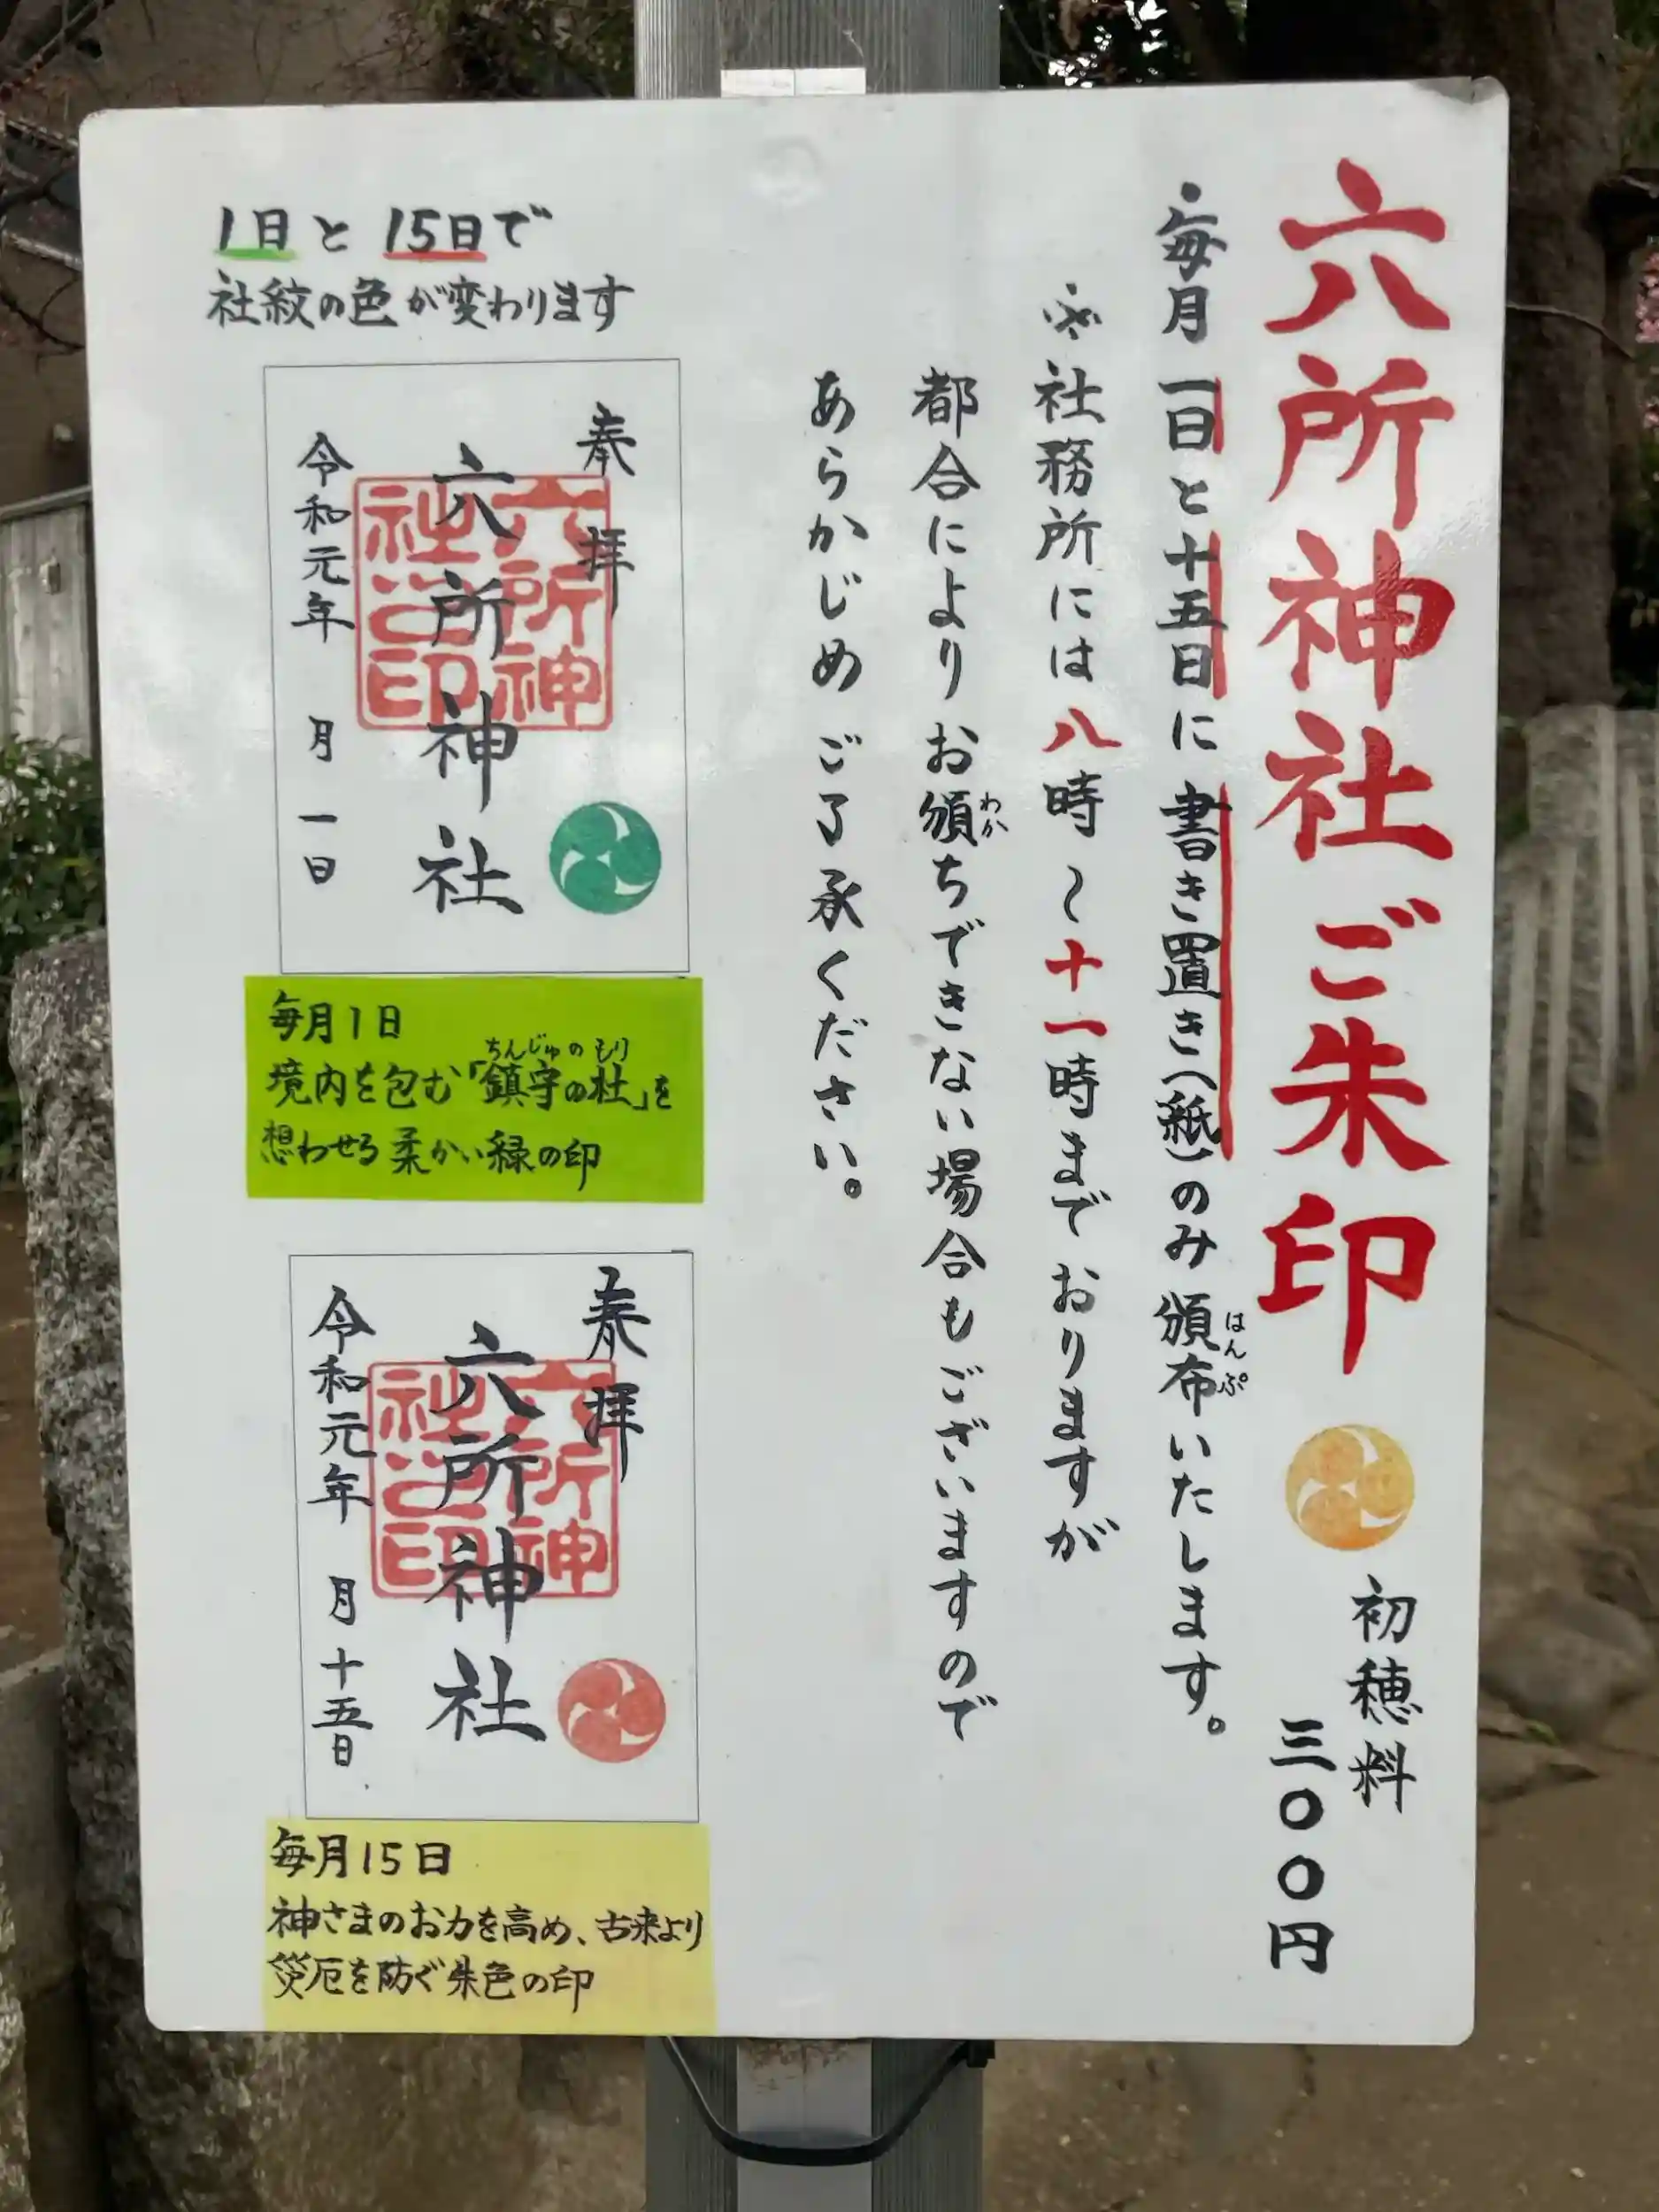 六所神社ご朱印
初穂料
三〇〇円
・毎月一日と十五日に書き置き(紙)のみ頒布いたします。
はんぷ
※社務所には八時〜十一時までおりますが
都合によりお頒ちできない場合もございますので
わか
あらかじめご了承ください。
1日と15日で
社紋の色が変わります
奉拝
六所神社
六所神
社之印
令和元年 月一日
毎月1日
ちんじゅのもり
境内を包む「鎮守の杜」を
想わせる柔かい緑の印
奉拝
六所神社
六所神
社之印
令和元年 月十五日
毎月15日
神さまのお力を高め、古来より
災厄を防ぐ朱色の印